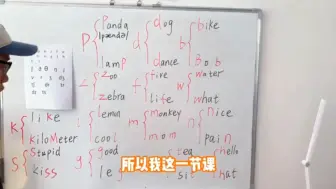 Panda dog bike
P [pændə] d b
lamp dance Bob
zoo fire water
z f w
zebra life what
like lemon monkey nice
k l m n
kiloMeter cool mom pain
Stupid good hello
s g
kiss
所以我这一节课